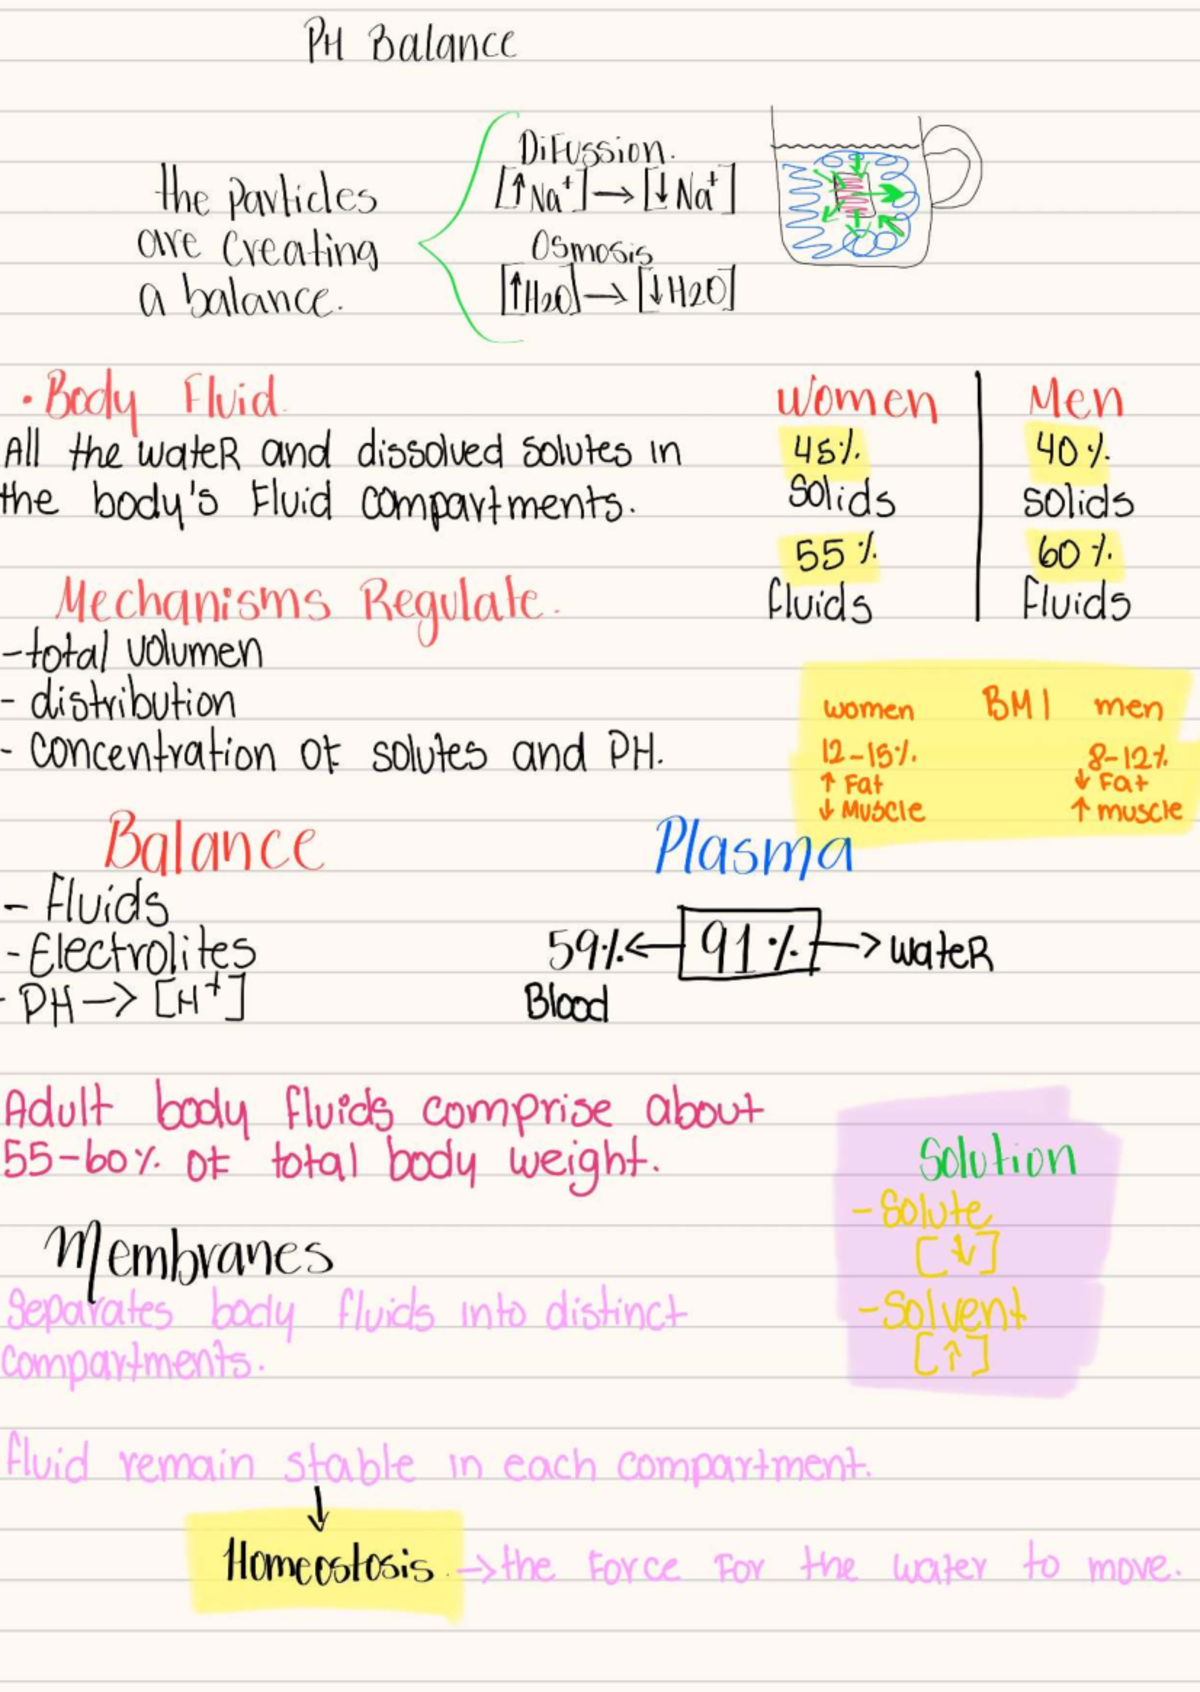 PH Balance
the particles
are creating
a balance.
Difussion.
[↑Na⁺]→[↓Na⁺]
Osmosis
[↑H2O]→[↓H2O]
• Body Fluid.
All the wateR and dissolved solutes in
the body's Fluid compartments.
Women
45%
Solids
55%
fluids
Men
40%
solids
60%
fluids
Mechanisms Regulate.
-total volumen
- distribution
- concentration of solutes and PH.
BMI
women
12-15%
↑ Fat
↓ Muscle
men
8-12%
↓ Fat
↑ muscle
Balance
- Fluids
- Electrolites
- PH → [H⁺]
Plasma
59% ← 91% → wateR
Blood
Adult body fluids comprise about
55-60% of total body weight.
Solution
- Solute
[↓]
- Solvent
[↑]
Membranes
Separates body fluids into distinct
compartments.
fluid remain stable in each compartment.
↓
Homeostosis. → the Force For the water to move.